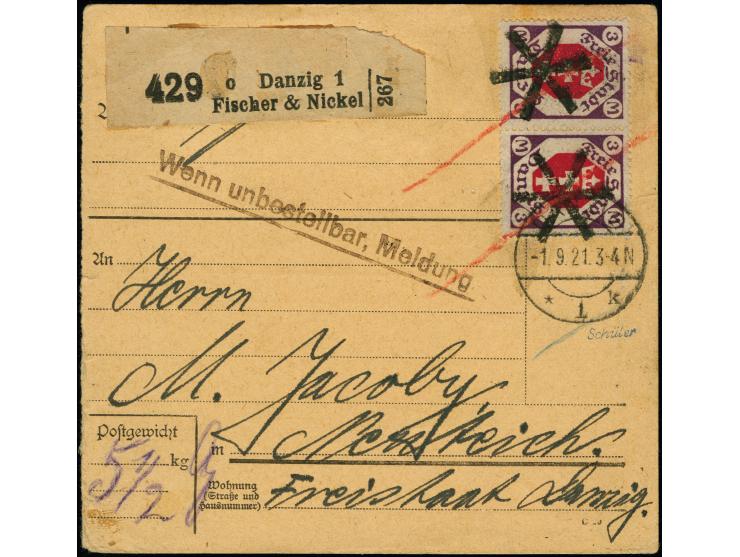 429 o Danzig 1
Fischer & Nickel 267
3 Freie Stadt
3 Freie Stadt
Wenn unbestellbar, Meldung
-1.9.21.3-4N
* 1 k
Schüler
An Herrn
M. Jacoby,
Postgewicht
5 1/2 kg
in
Wohnung
(Straße und
Hausnummer)
Freistaat Danzig.